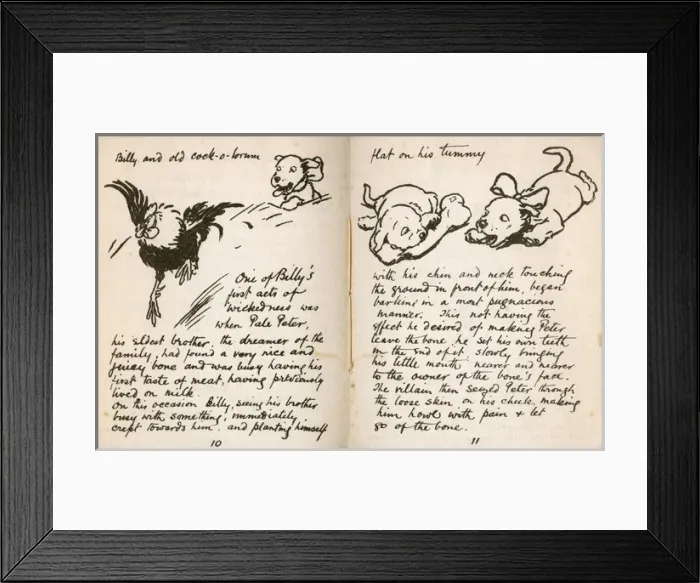 Billy and old cock-o-lorum
One of Billy's
first acts of
wickedness was
when Pale Peter,
his eldest brother, the dreamer of the
family, had found a very nice and
juicy bone and was busy having his
first taste of meat, having previously
lived on milk.
On this occasion Billy, seeing his brother
busy with something, immediately
crept towards him, and planting himself
10
flat on his tummy
with his chin and neck touching
the ground in front of him, began
barking in a most pugnacious
manner. This not having the
effect he desired of making Peter
leave the bone, he set his own teeth
in the end of it slowly bringing
his little mouth nearer and nearer
to the owner of the bone's face.
The villain then seized Peter through
the loose skin on his cheek making
him howl with pain & let
go of the bone.
11